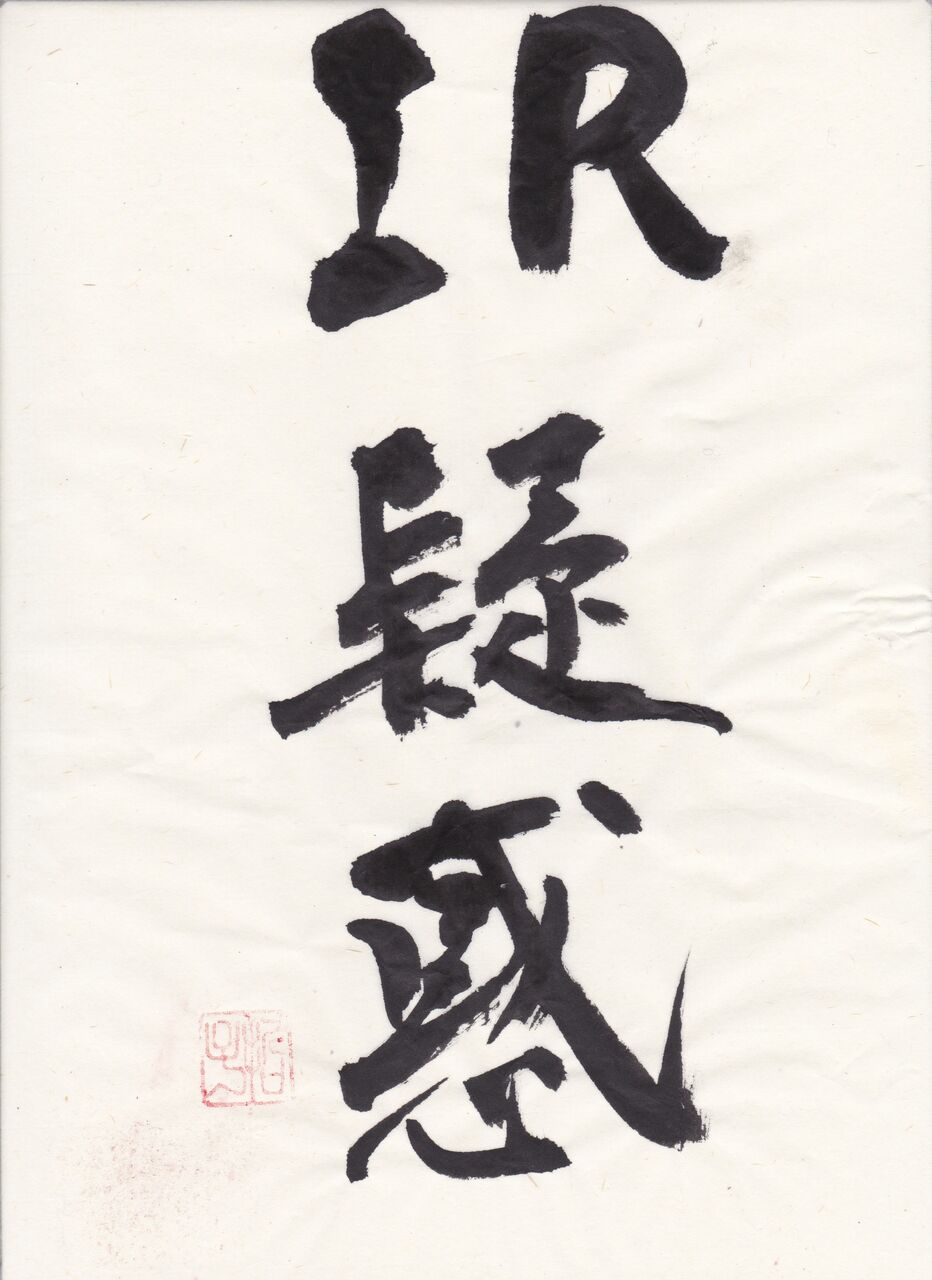 IR
疑
惑